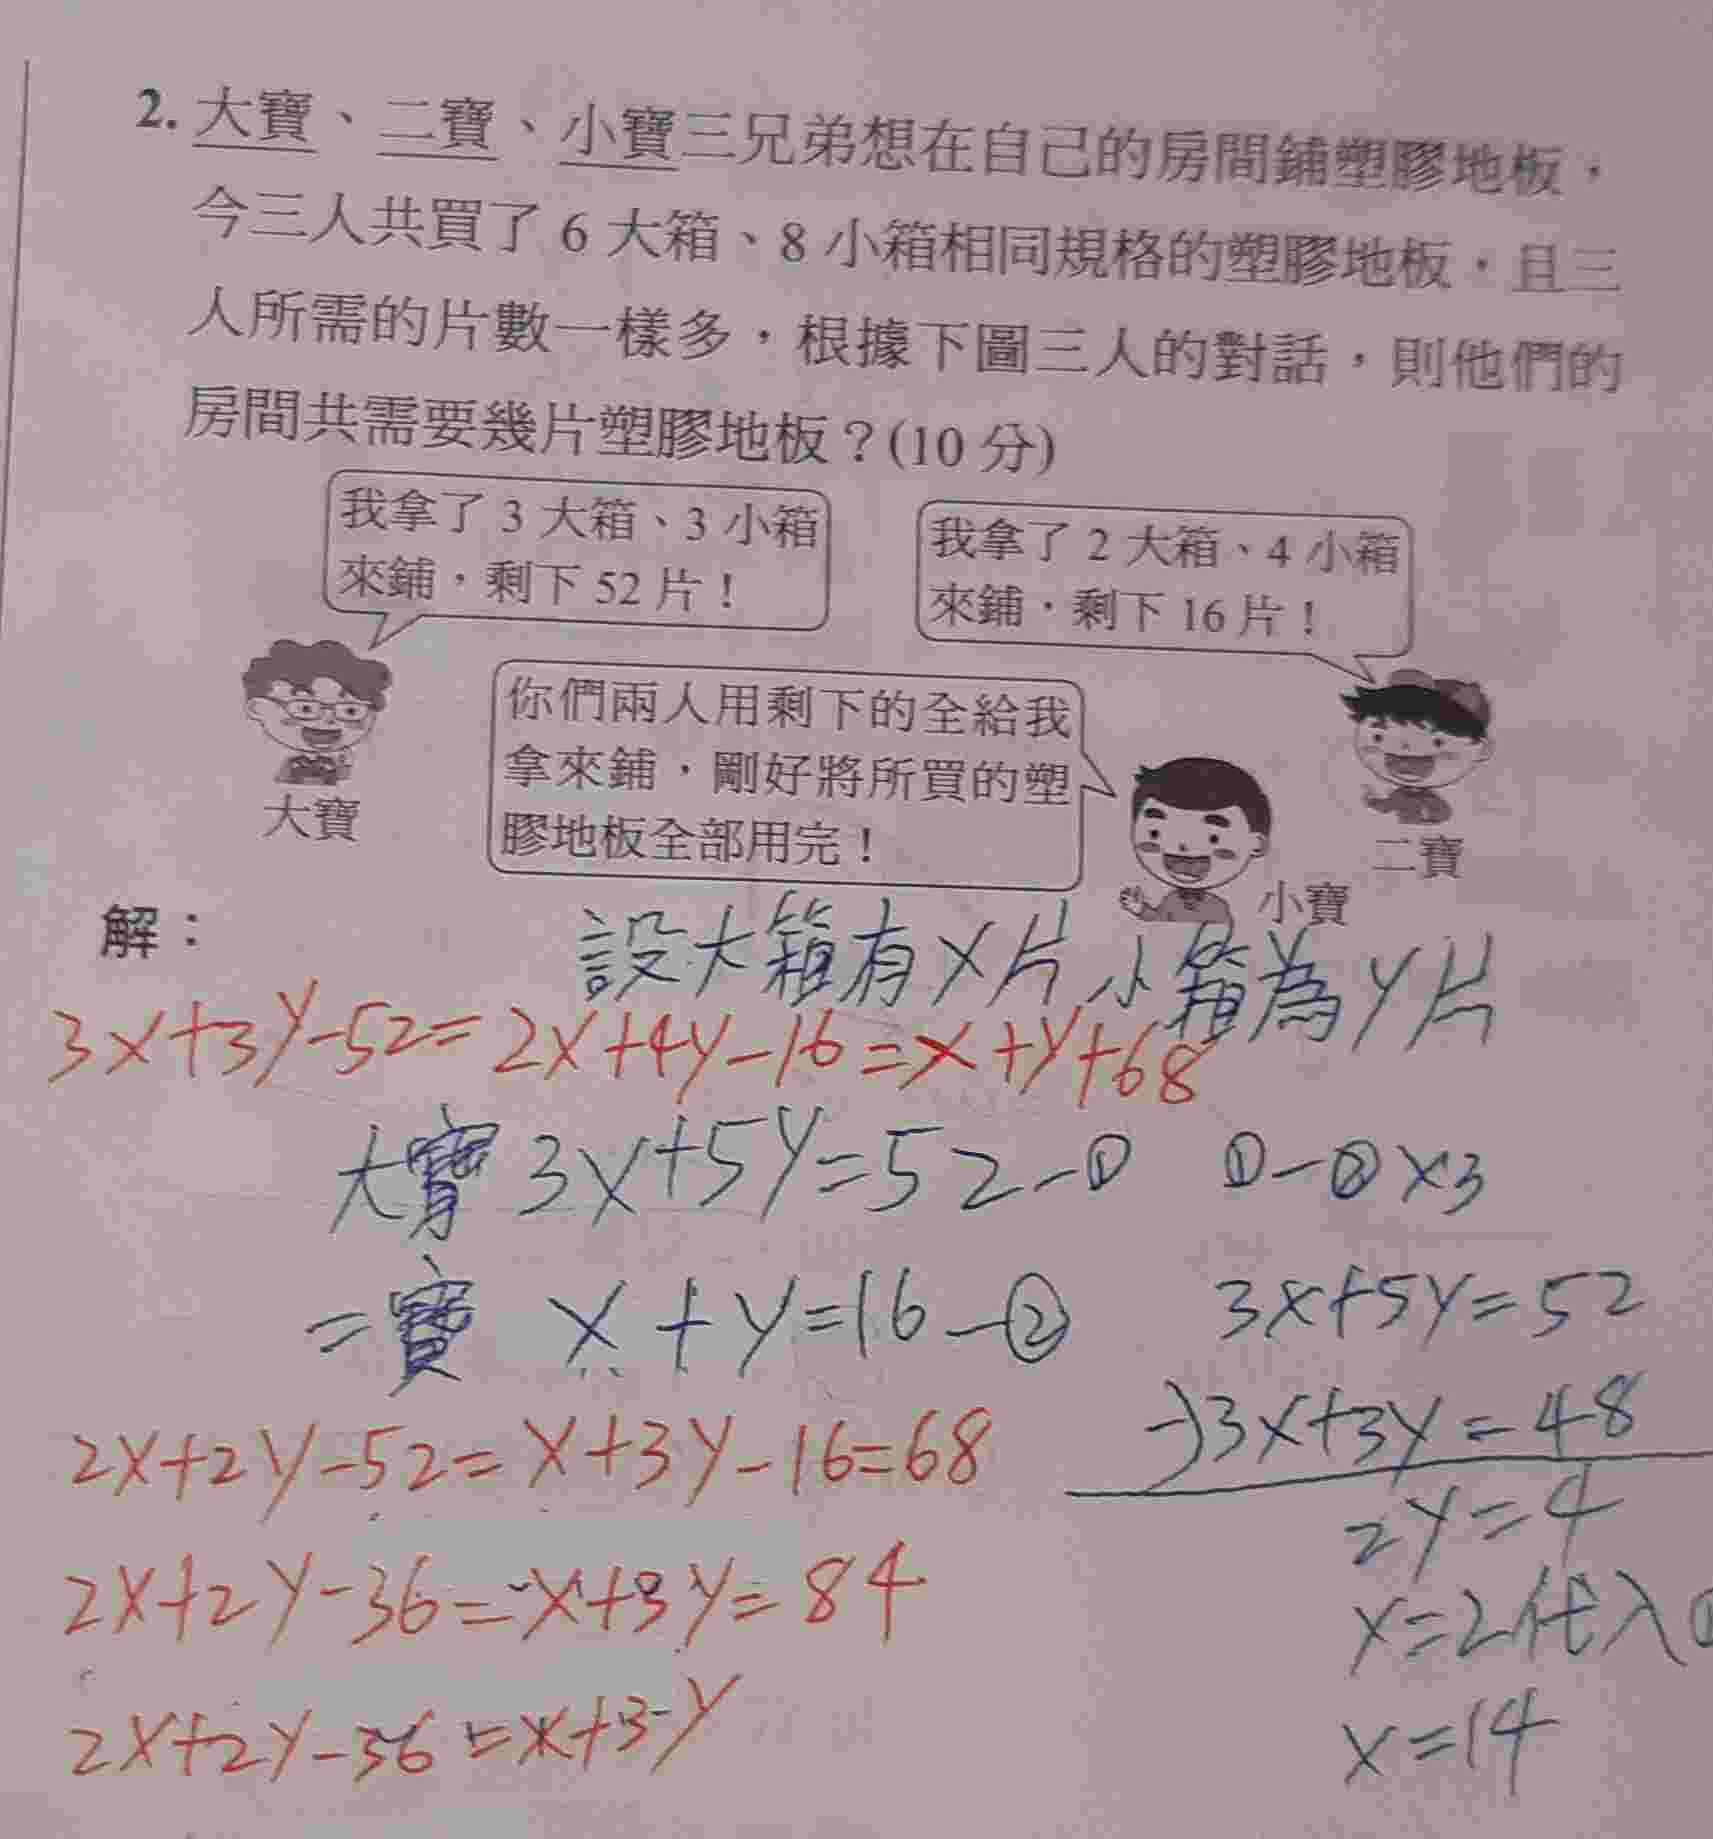 2. 大寶、二寶、小寶三兄弟想在自己的房間鋪塑膠地板，
今三人共買了 6 大箱、8 小箱相同規格的塑膠地板，且三
人所需的片數一樣多，根據下圖三人的對話，則他們的
房間共需要幾片塑膠地板？(10 分)
我拿了 3 大箱、3 小箱
來鋪，剩下 52 片！
我拿了 2 大箱、4 小箱
來鋪，剩下 16 片！
你們兩人用剩下的全給我
拿來鋪，剛好將所買的塑
膠地板全部用完！
大寶
二寶
小寶
解：
設大箱有x片小箱為y片
3x+3y-52=2x+4y-16=x+y+68
大寶 3x+5y=52-①
①-②×3
二寶 x+y=16-②
3x+5y=52
-)3x+3y=48
2y=4
y=2代入①
x=14
2x+2y-52=x+3y-16=68
2x+2y-36=x+3y=84
2x+2y-36=x+3y